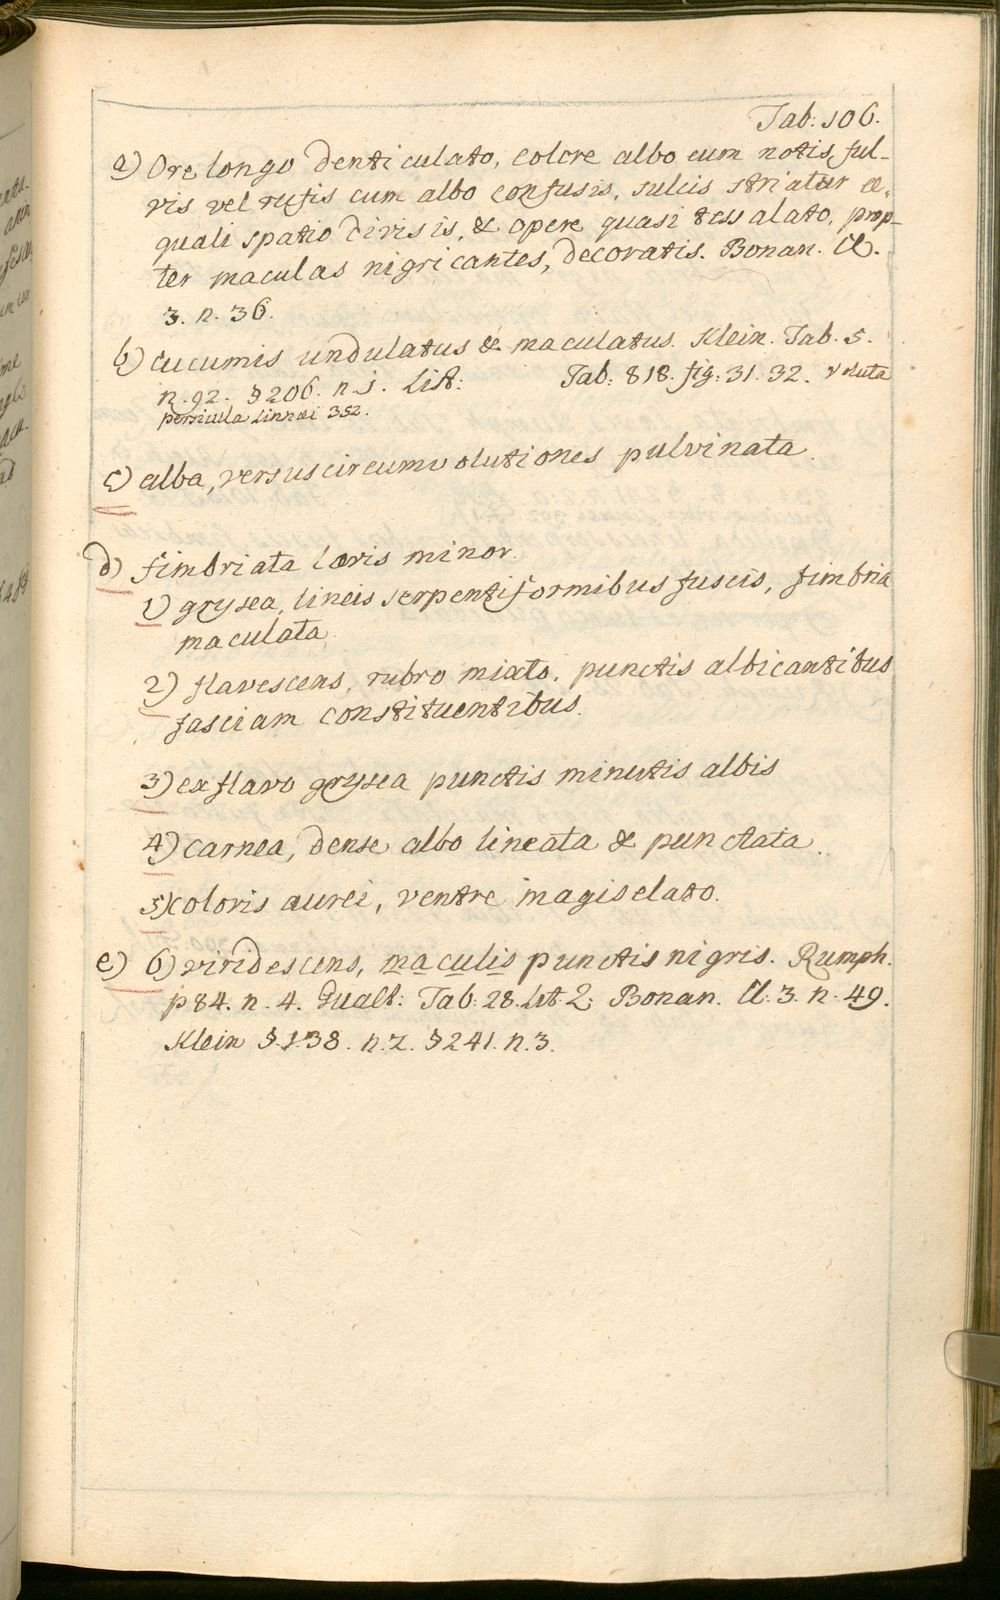 Tab: 106.
a) Ore longo denticulato, colore albo cum notis ful-
vis vel rufis cum albo confusis, sulcis striatur æ-
quali spatio divisis, & opere quasi tessalato, prop-
ter maculas nigricantes, decoratis. Bonan. Cl.
3. n. 36.
b) Cucumis undulatus & maculatus. Klein. Tab. 5.
n. 92. § 206. n. 1. List: Tab: 818. fig: 31. 32. voluta
persicula Linnæi 352.
c) alba, versus circumvolutiones pulvinata.
d) fimbriata lævis minor.
1) grysea, lineis serpentiformibus fuscis, fimbria
maculata.
2) flavescens, rubro mixto, punctis albicantibus
fasciam constituentibus.
3) ex flavo grysea punctis minutis albis
4) carnea, dense albo lineata & punctata.
5) coloris aurei, ventre magis elato.
e) 6) viridescens, maculis punctis nigris. Rumph.
p 84. n. 4. Gualt: Tab: 28. lit. Bonan. Cl. 3. n. 49.
Klein § 138. n. 7. § 241. n. 3.